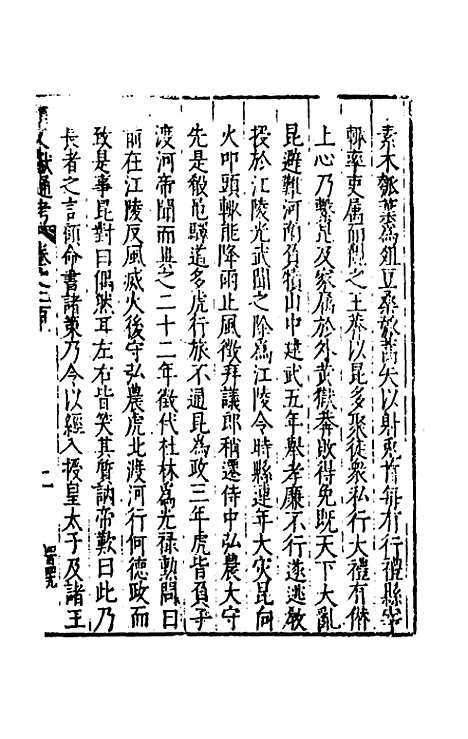 素木瓠葉為俎豆桑弧蒿矢以射兎首每有行禮縣宰
輙率吏屬而觀之王莽以昆多聚徒衆私行大禮有僣
上心乃繫昆及家屬於外黄獄莽敗得免既天下大亂
昆避難河南負犢山中建武五年舉孝廉不行遂逃教
授於江陵光武聞之除為江陵令時縣連年大灾昆向
火叩頭輙能降雨止風徴拜議郎稍遷侍中弘農大守
先是殽黽驛道多虎行旅不通昆為政三年虎皆負子
渡河帝聞而異之二十二年徴代杜林為光祿勲問曰
前在江陵反風滅火後守弘農虎北渡河行何德政而
致是事昆對曰偶然耳左右皆笑其質訥帝歎曰此乃
長者之言顧命書諸策乃令以經入授皇太子及諸王
文獻通考 卷之二百